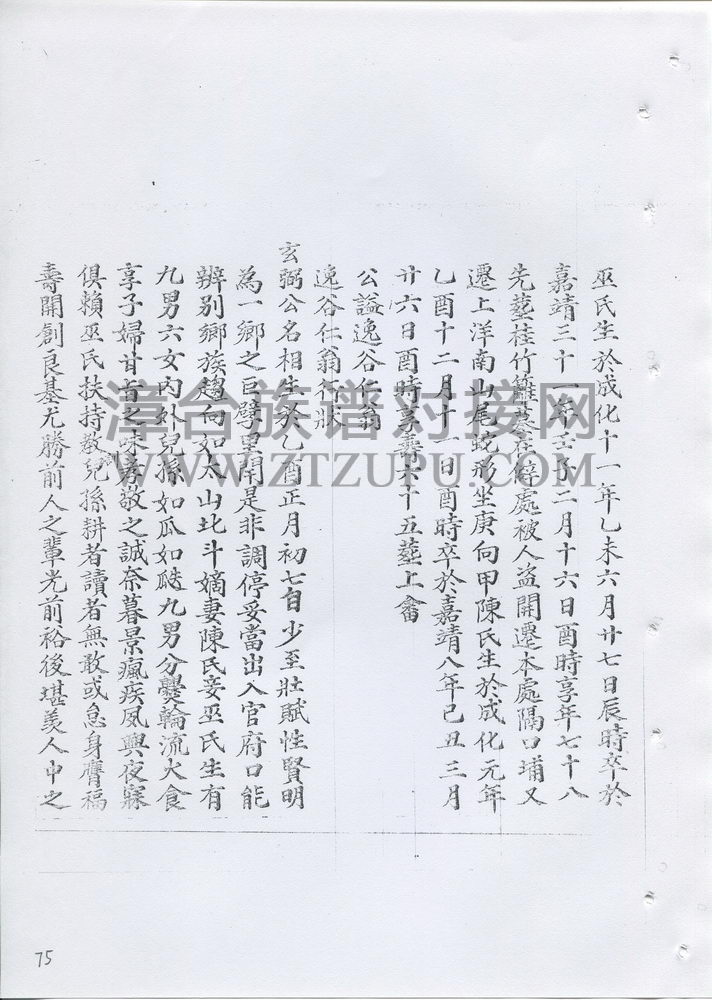 巫氏生於成化十一年乙未六月廿七日辰時卒於
嘉靖三十一年壬子二月十六日酉時享年七十八
先塟桂竹籬墓在僻處被人盜開遷本處隔口埔又
遷上洋南山尾蛇形坐庚向甲陳氏生於成化元年
乙酉十二月十一日酉時卒於嘉靖八年己丑三月
廿六日酉時享壽六十五塟上畬
公謚逸谷仁翁
逸谷仁翁行狀
玄弼公名相生於乙酉正月初七自少至壯賦性賢明
為一鄉之巨擘里閈是非調停妥當出入官府口能
辨别鄉族趨向如太山北斗嫡妻陳氏妾巫氏生有
九男六女内外兒孫如瓜如瓞九男分爨輪流火食
享子婦甘旨之味尊敬之誠奈暮景瘋疾夙興夜寐
俱賴巫氏扶持教兒孫耕者讀者無敢或怠身膺福
壽開創良基尤勝前人之輩光前裕後堪羡人中之
漳台族谱对接网
WWW.ZTZUPU.COM
75